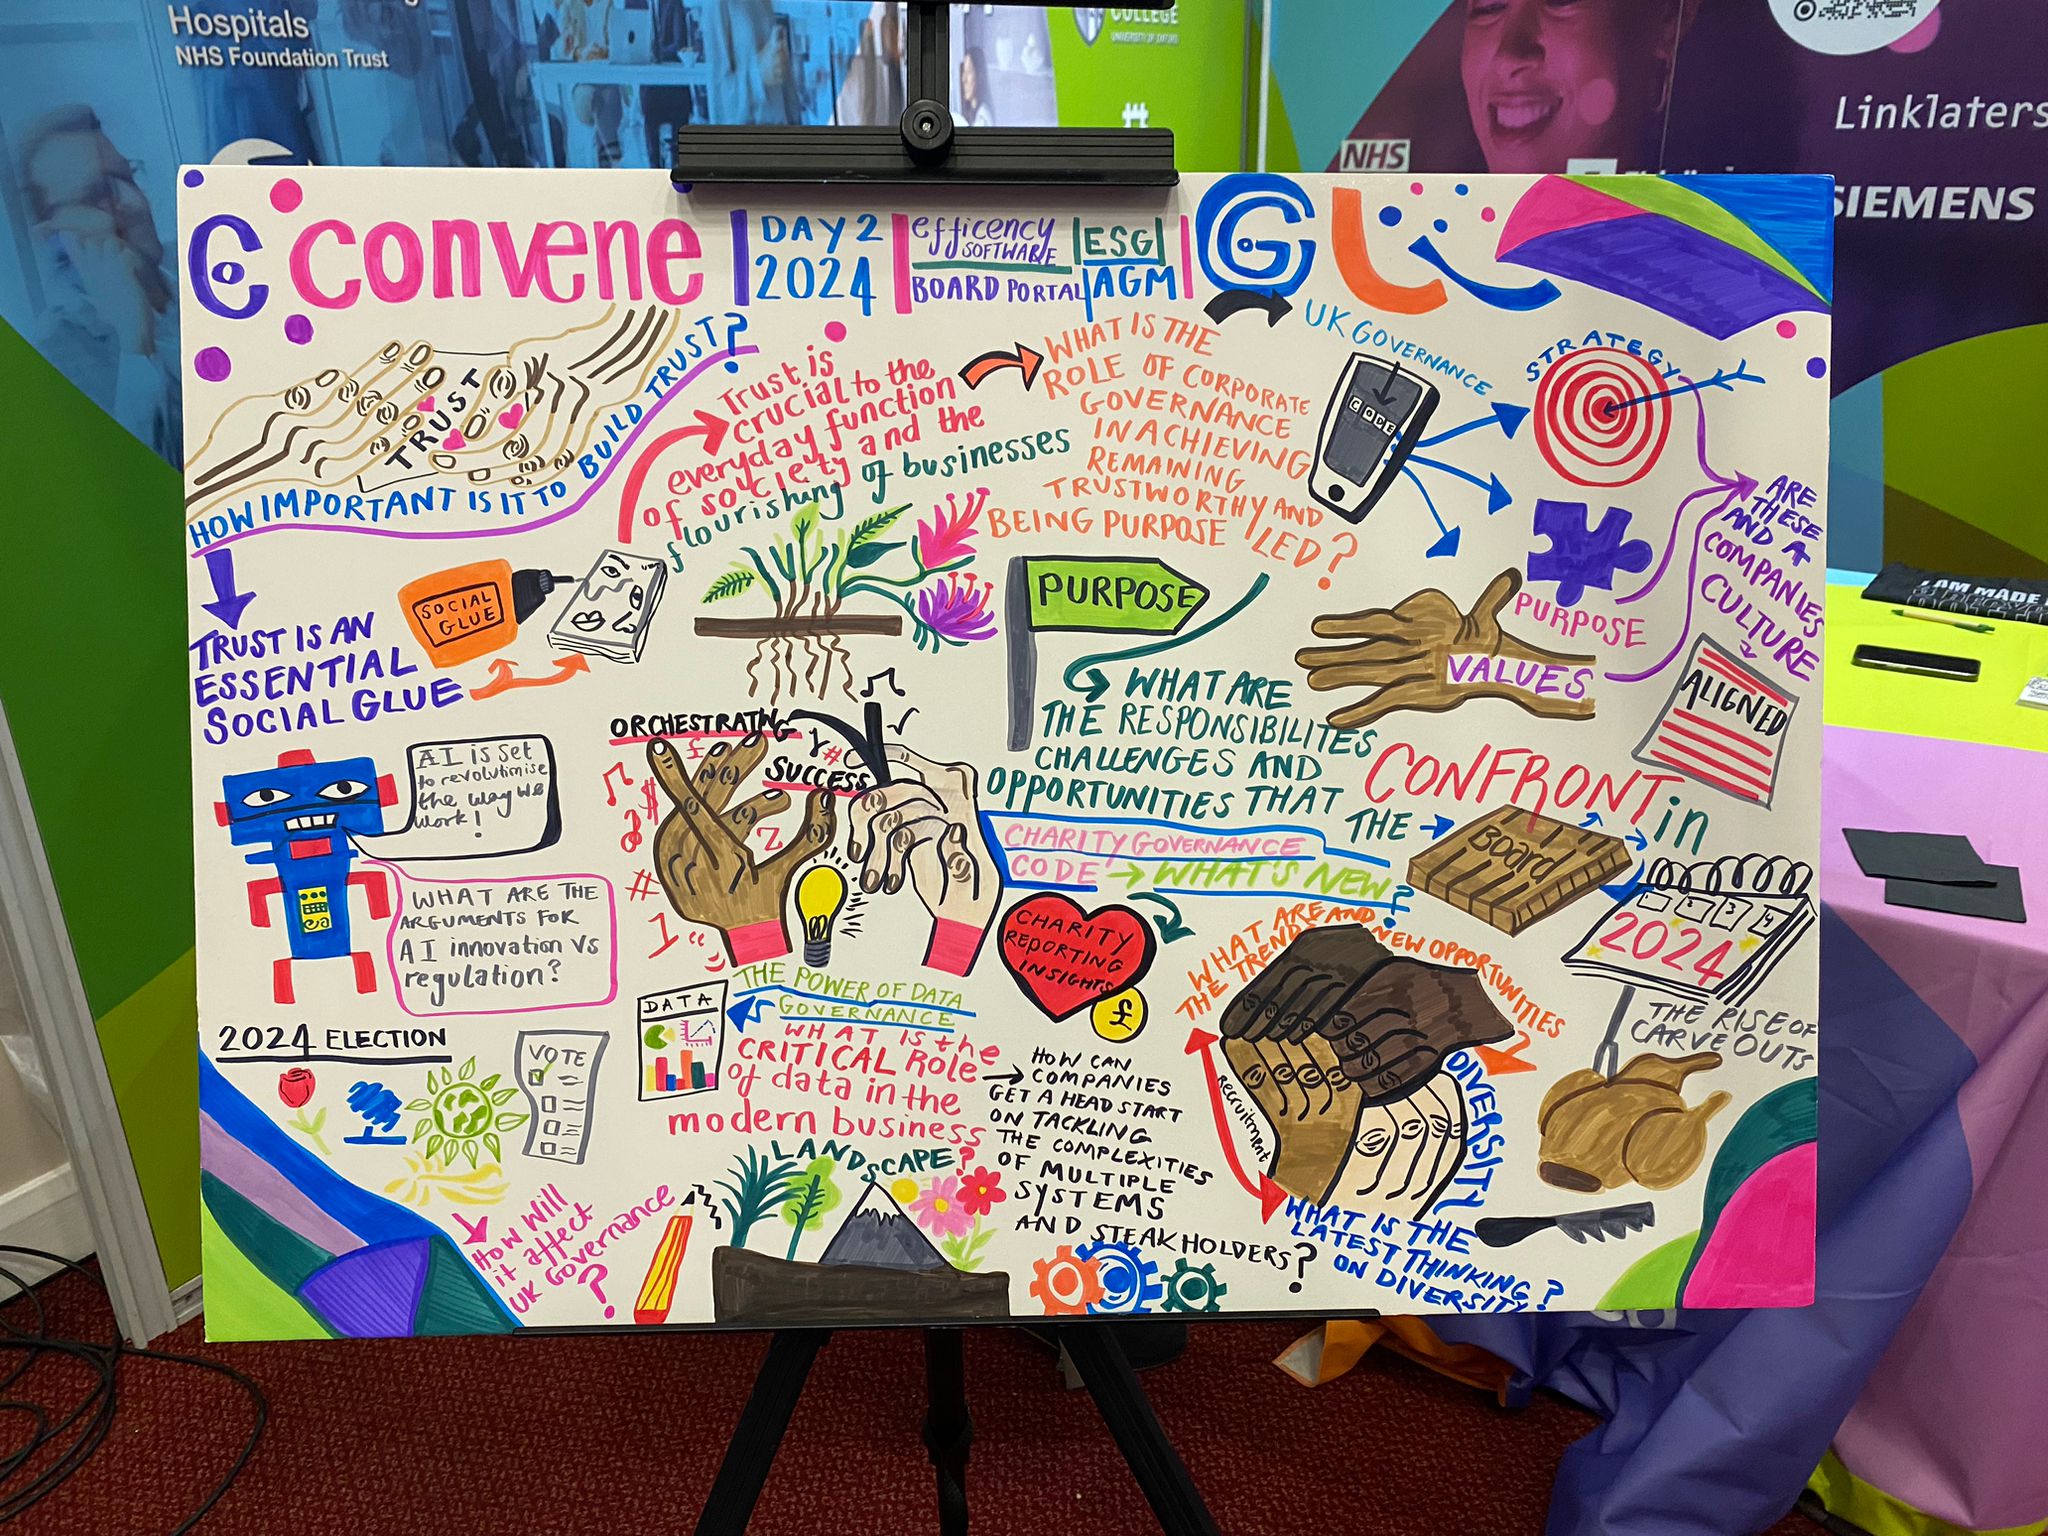 Hospitals
NHS Foundation Trust
COLLEGE
UNIVERSITY OF OXFORD
#
Linklaters
NHS
SIEMENS
I AM MADE
e convene
DAY 2
2024
efficency
SOFTWARE
BOARD PORTAL
ESG
AGM
G
TRUST
HOW IMPORTANT IS IT TO BUILD TRUST?
TRUST IS AN
ESSENTIAL
SOCIAL GLUE
SOCIAL
GLUE
Trust is
crucial to the
everyday function
of society and the
flourishing of businesses
WHAT IS THE
ROLE OF CORPORATE
GOVERNANCE
IN ACHIEVING
REMAINING
TRUSTWORTHY AND
BEING PURPOSE LED?
UK GOVERNANCE
CODE
STRATEGY
PURPOSE
VALUES
ARE
THESE
AND A
COMPANIES
CULTURE
ALIGNED
PURPOSE
WHAT ARE
THE RESPONSIBILITES
CHALLENGES AND
OPPORTUNITIES THAT THE
Board
CONFRONT in
2024
1 2 3 4
ORCHESTRATING
SUCCESS
AI is set
to revolutionise
the way we
work!
WHAT ARE THE
ARGUMENTS FOR
AI innovation vs
regulation?
CHARITY GOVERNANCE
CODE → WHAT'S NEW?
CHARITY
REPORTING
INSIGHTS
£
THE POWER OF DATA
GOVERNANCE
DATA
WHAT IS the
CRITICAL ROLE
of data in the
modern business
LANDSCAPE?
HOW CAN
COMPANIES
GET A HEAD START
ON TACKLING
THE COMPLEXITIES
OF MULTIPLE
SYSTEMS
AND STEAKHOLDERS?
2024 ELECTION
VOTE
How will
it affect
UK Governance
?
WHAT ARE AND NEW OPPORTUNITIES
THE TRENDS
?
recruitment
DIVERSITY
WHAT IS THE
LATEST THINKING
ON DIVERSITY?
THE RISE OF
CARVE OUTS